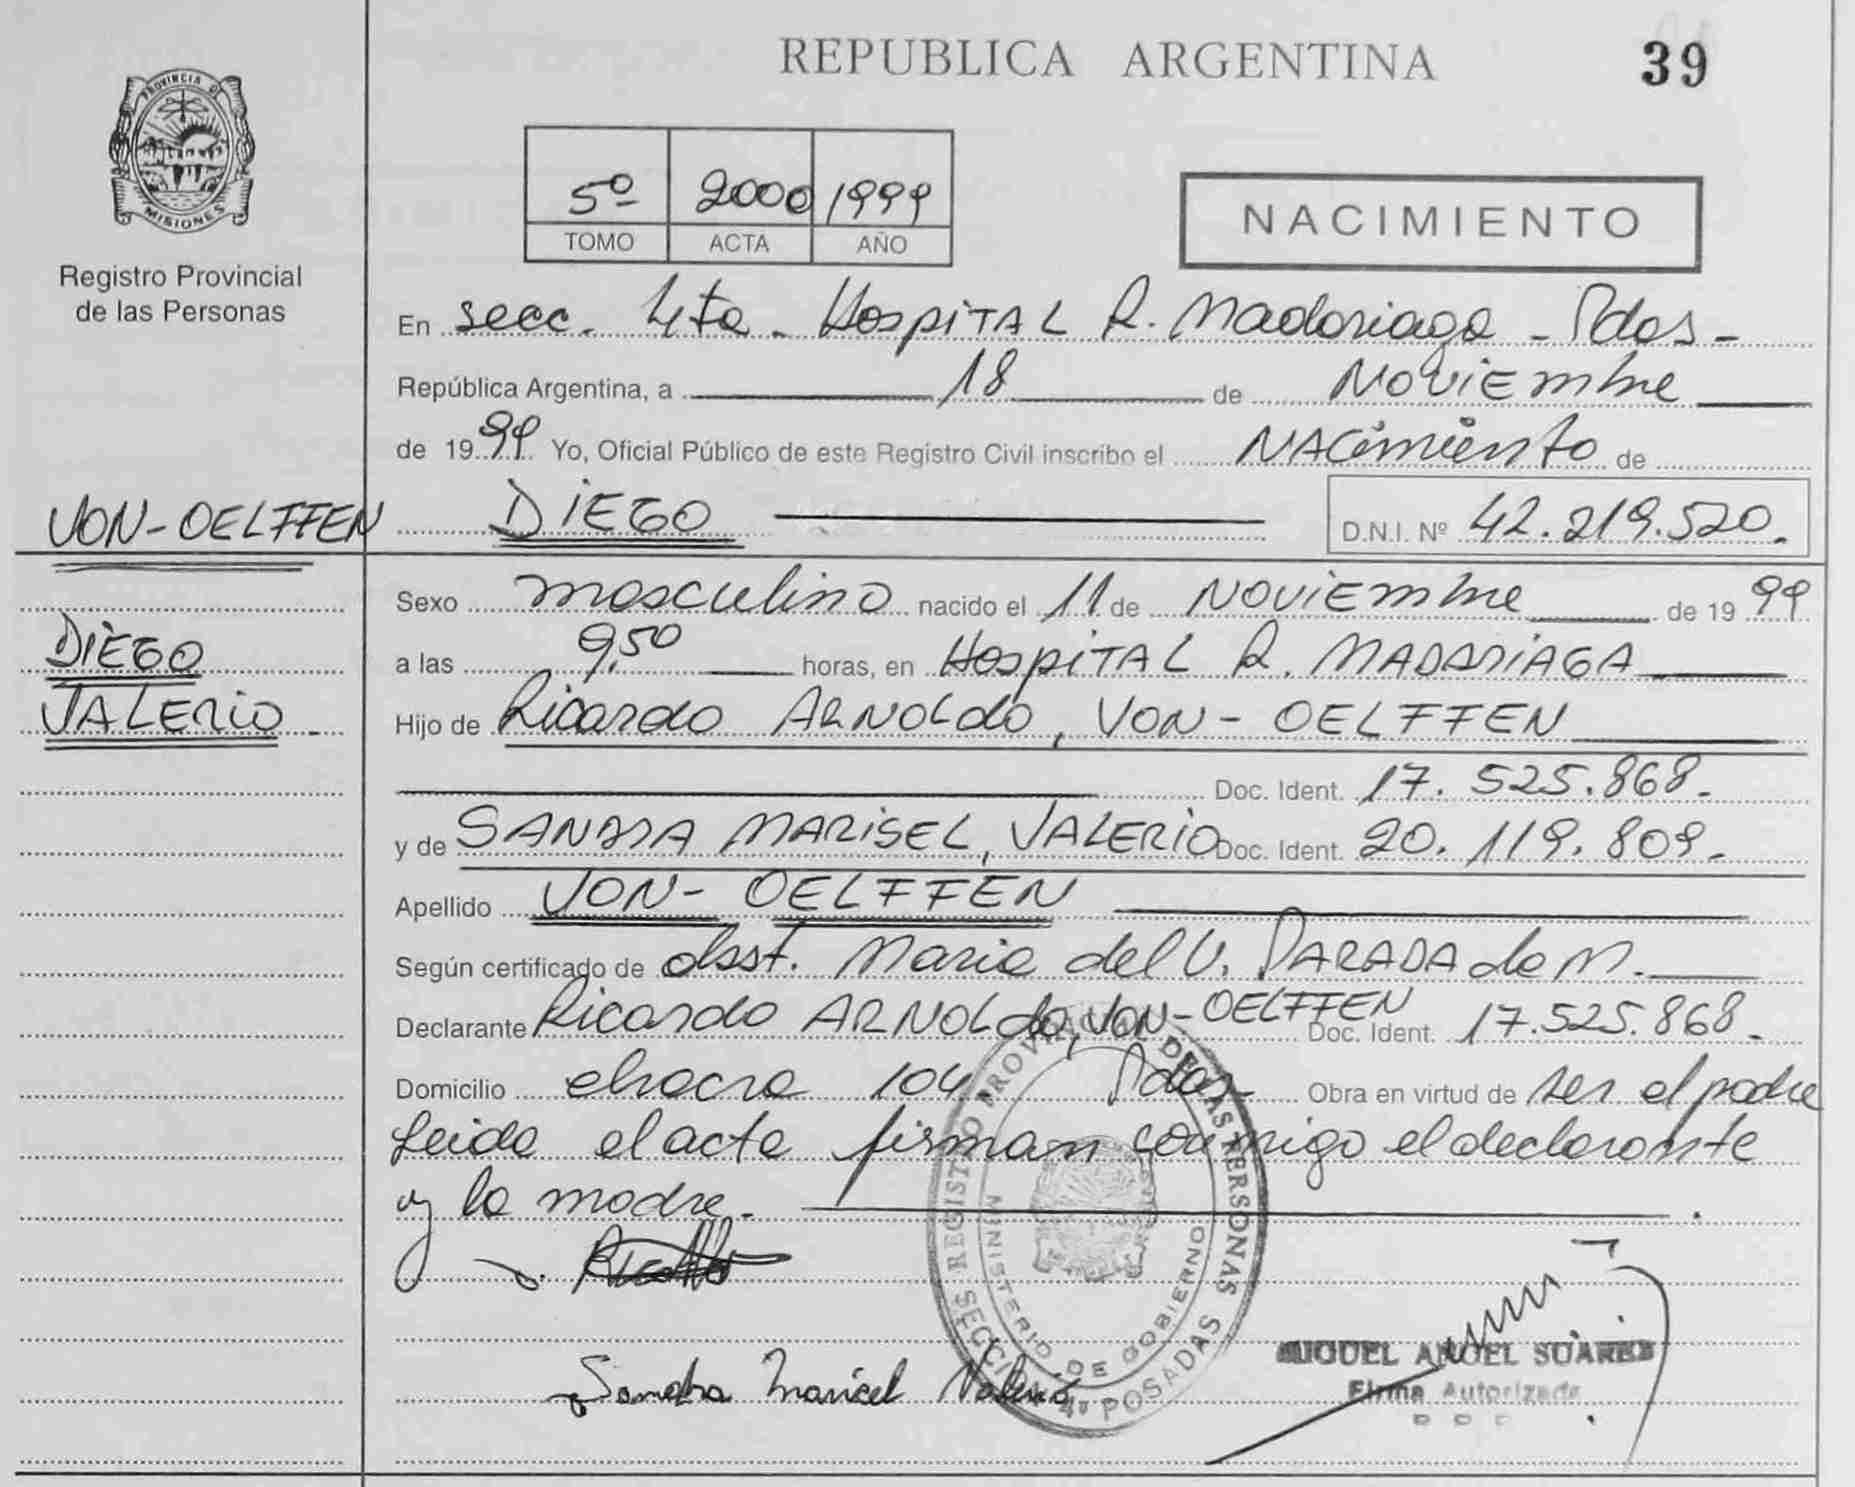 REPUBLICA ARGENTINA
39
PROVINCIA DE
MISIONES
Registro Provincial
de las Personas
5º 2000 1999
TOMO ACTA AÑO
NACIMIENTO
En secc. 4ta. Hospital R. Madariaga - Pdas -
República Argentina, a 18 de Noviembre
de 1999 Yo, Oficial Público de este Registro Civil inscribo el NACimiento de
VON-OELFFEN
DIEGO
D.N.I. Nº 42.219.520.
DIEGO
VALERIO.
Sexo masculino nacido el 11 de NOViEmbre de 1999
a las 9,50 horas, en HospiTAL R. MADARiAGA
Hijo de Ricardo ARNOLdo, VON-OELFFEN
Doc. Ident. 17.525.868.
y de SANDRA MARISEL, VALERIO Doc. Ident. 20.119.809.
Apellido VON-OELFFEN
Según certificado de obst. Maria del V. PARADA de M.
Declarante Ricardo ARNOLdo, VON-OELFFEN Doc. Ident. 17.525.868.
Domicilio chacra 104 Pdas. Obra en virtud de ser el padre
Leida el acta firman conmigo el declarante
y la madre.
Sandra Maricel Valerio
REGISTRO PROVINCIAL DE LAS PERSONAS
MINISTERIO DE GOBIERNO
SECCION 4ª POSADAS
MIGUEL ANGEL SUAREZ
Firma Autorizada